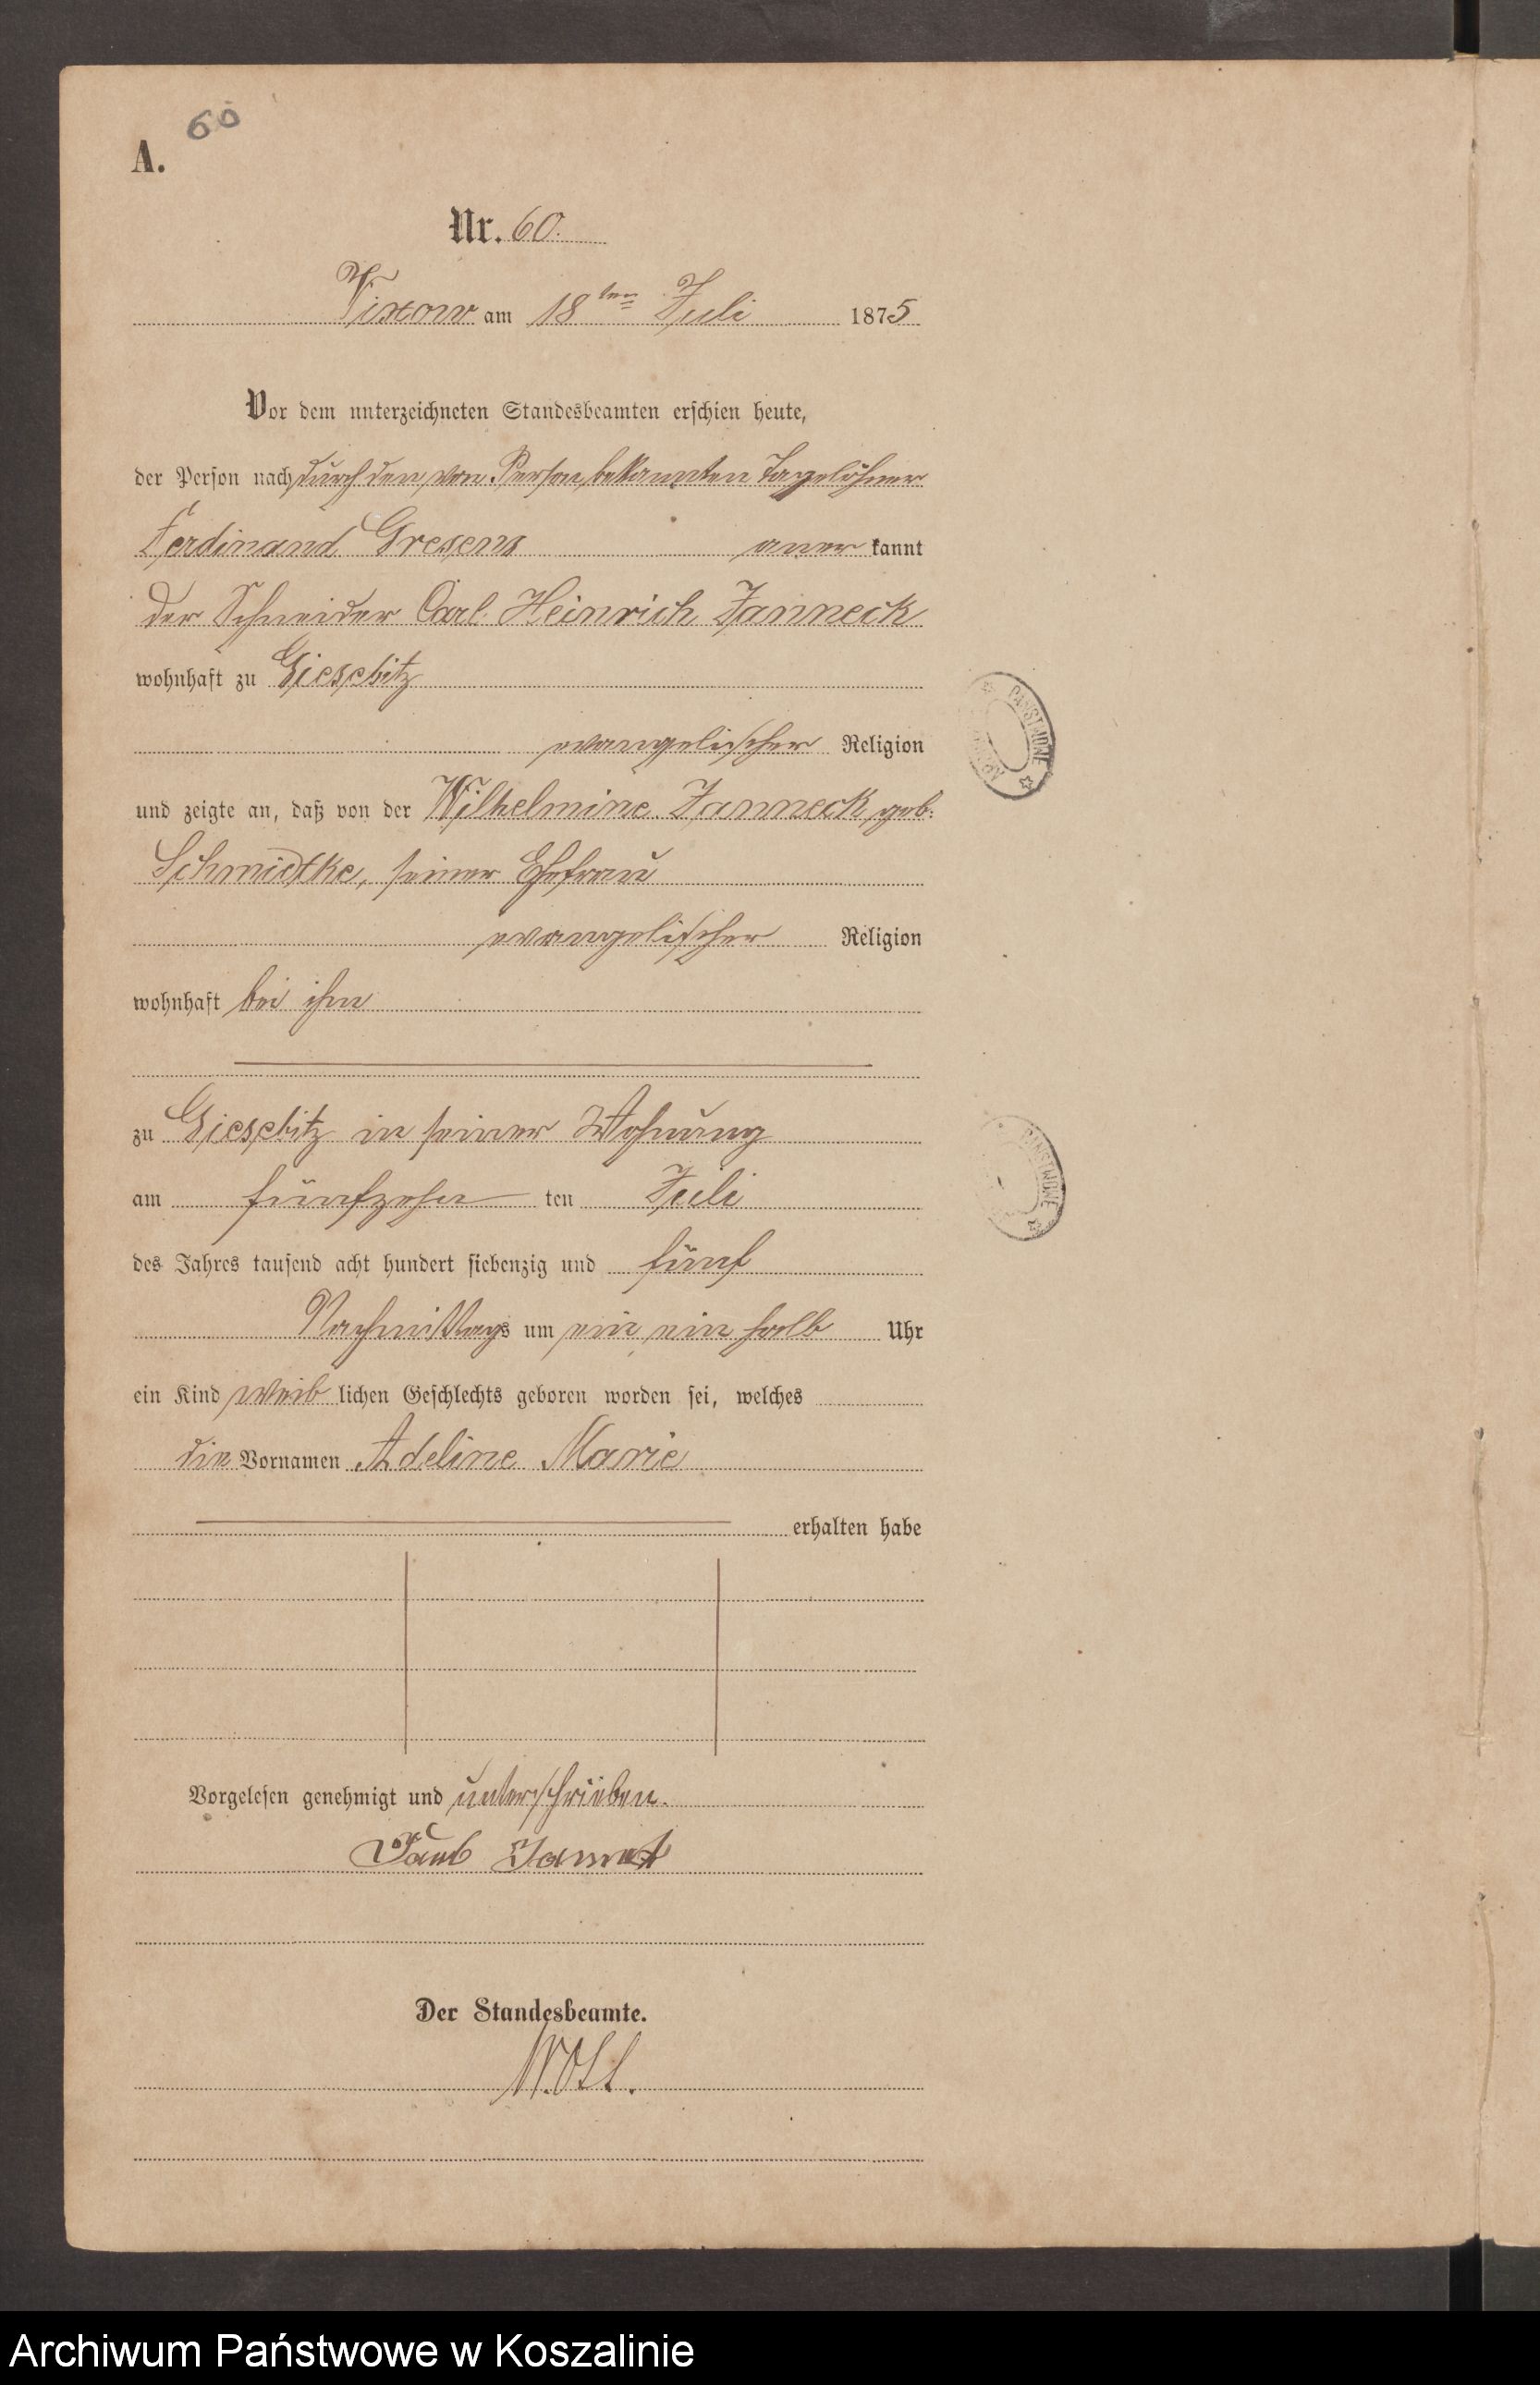 60
A.
Nr. 60.
Vixow am 18ten Juli 1875
Vor dem unterzeichneten Standesbeamten erschien heute,
der Person nach durch den von Person bekannten Tagelöhner
Ferdinand Gresens aner kannt
der Schneider Carl Heinrich Janneck
wohnhaft zu Giesebitz
evangelischer Religion
und zeigte an, daß von der Wilhelmine Janneck, geb.
Schmidtke, seiner Ehefrau
evangelischer Religion
wohnhaft bei ihm
zu Giesebitz in seiner Wohnung
am fünfzehn ten Juli
des Jahres tausend acht hundert siebenzig und fünf
Nachmittags um ein ein halb Uhr
ein Kind weib lichen Geschlechts geboren worden sei, welches
die Vornamen Adeline Marie
erhalten habe
Vorgelesen genehmigt und unterschrieben.
Der Standesbeamte.
PAŃSTWOWE
PAŃSTWOWE
Archiwum Państwowe w Koszalinie